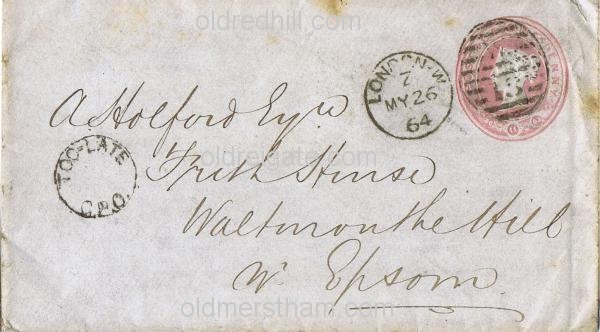 oldredhill.com
LONDON-W
7
MY 26
64
A Holford Esqre
oldreigate.com
TOO-LATE
G.P.O.
Frith House
Walton on the Hill
Nr Epsom
oldmerstham.com